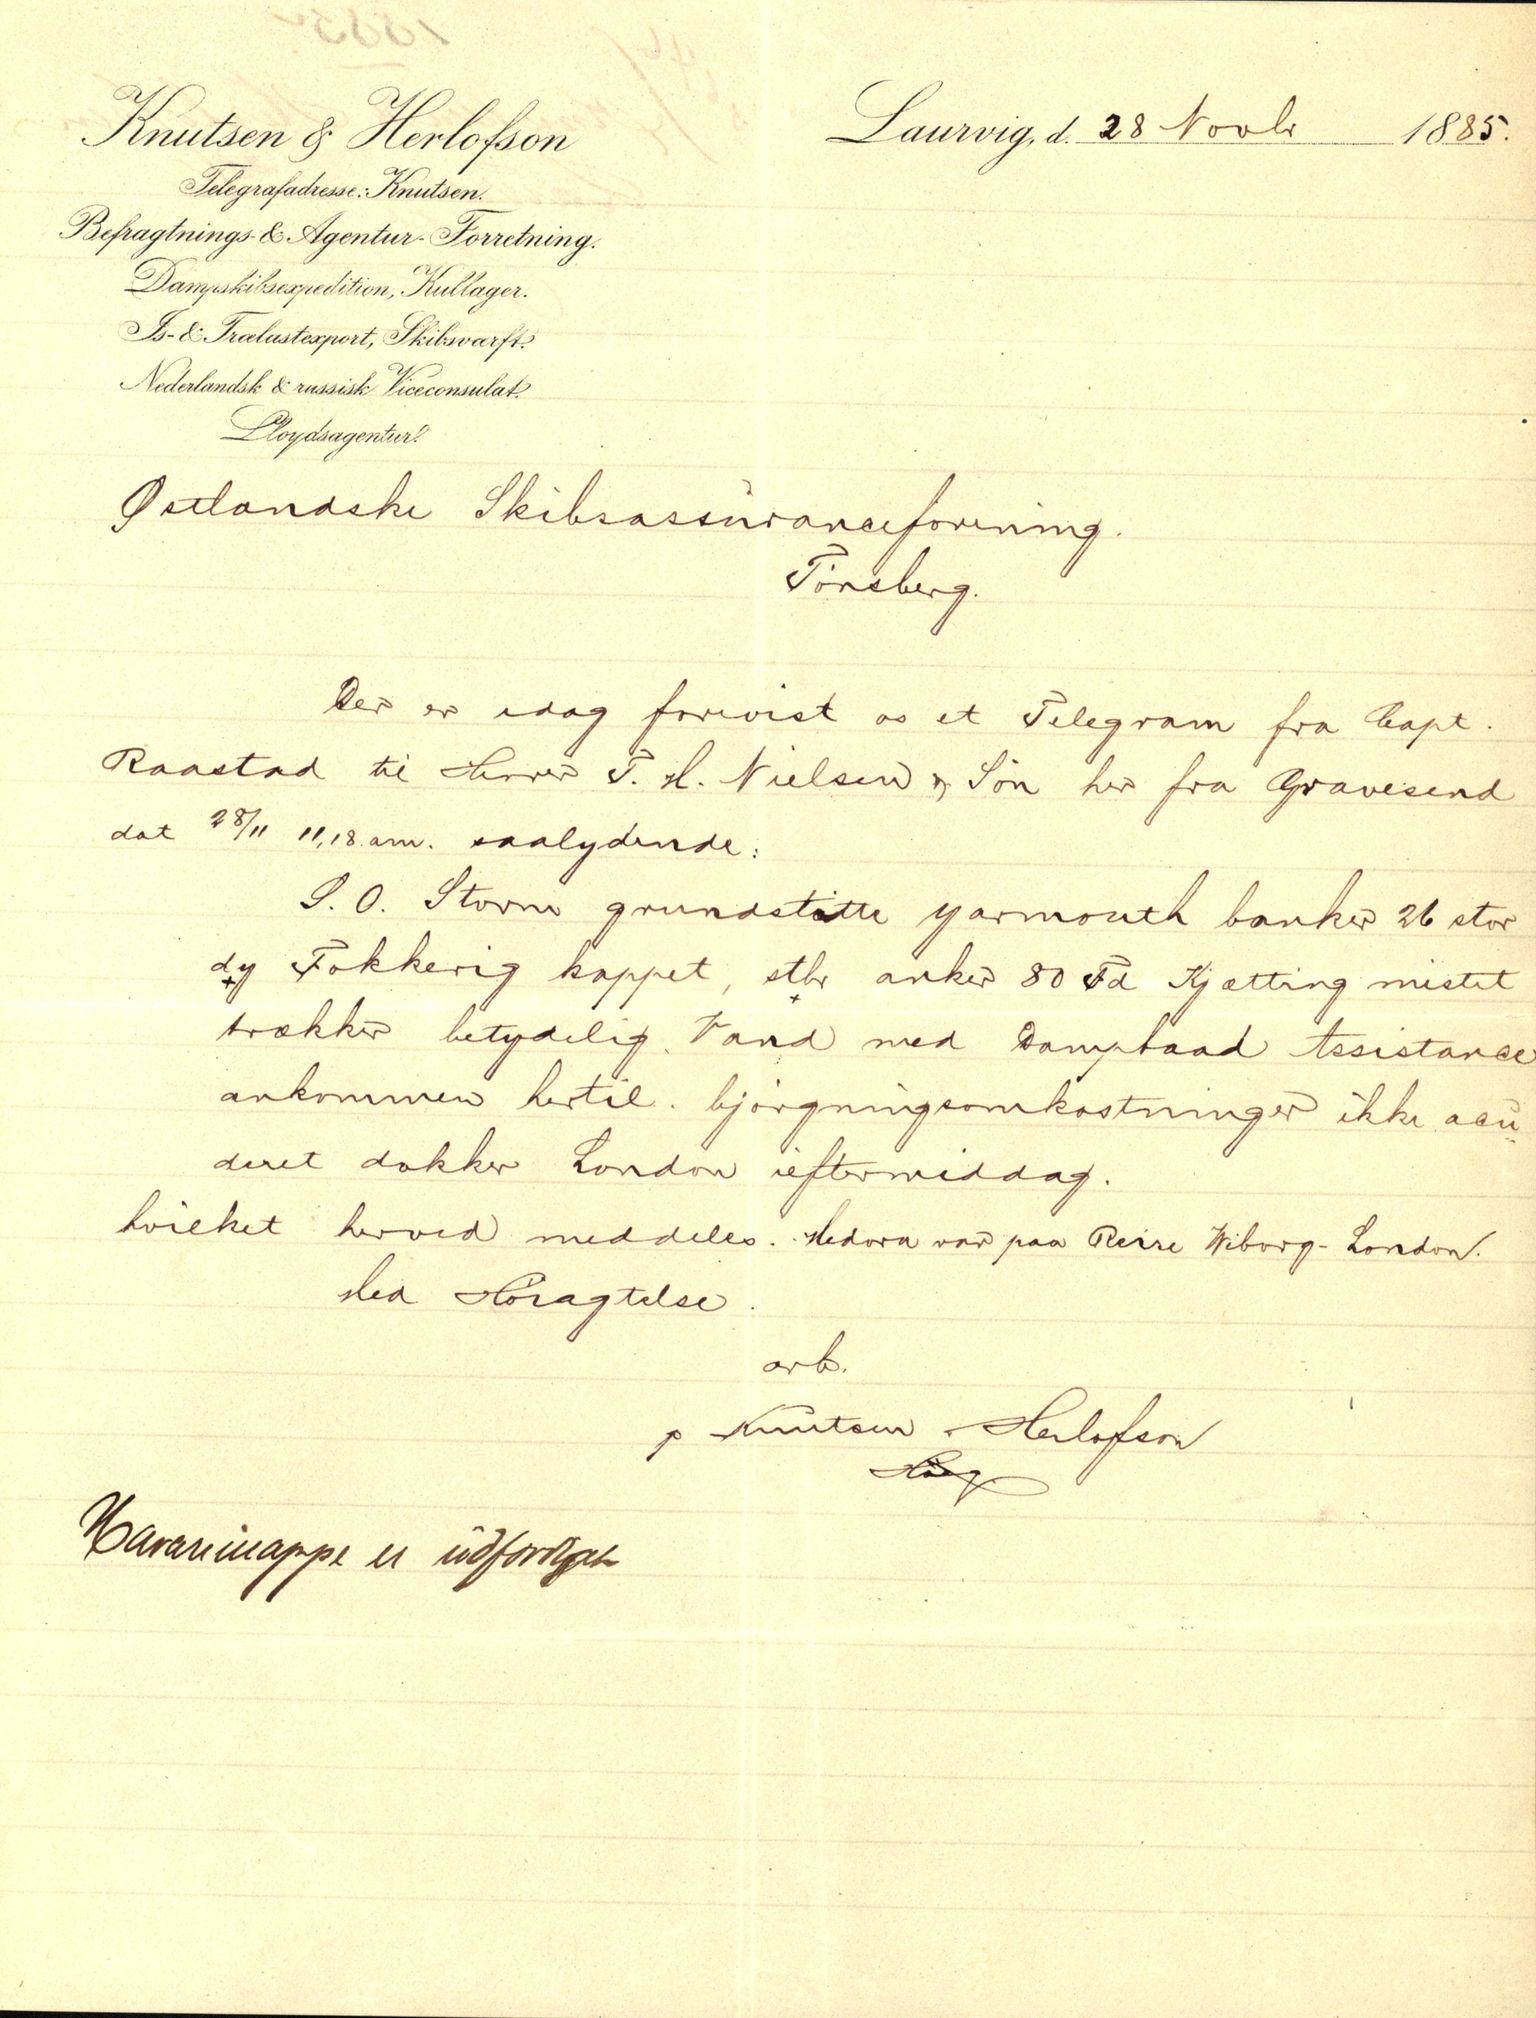 Knutsen & Herlofson
Telegrafadresse: Knutsen.
Befragtnings- & Agentur-Forretning.
Dampskibsexpedition, Kullager.
Is- & Trælastexport, Skibsværft.
Nederlandsk & russisk Viceconsulat.
Lloydsagentur.
Laurvig, d. 28 Novbr 1885.
Østlandske Skibsassuranceforening.
Tönsberg.
Der er idag forevist os et Telegram fra Capt.
Raastad til Herrer T. H. Nielsen & Sön her fra Gravesend
dat 28/11 11,18 am. saalydende:
S. O. Storm grundstötte yarmouth banker 26 stor
dy Fokkerig kappet, stbr anker 80 Fd Kjætting mistet
trækker betydelig Vand med Dampbaad Assistance
ankommen hertil. björgningsomkostninger ikke accu
deret dokker London ieftermiddag.
hvilket herved meddeles. Medora var paa Reise Wiborg - London.
Med Höiagtelse.
arb.
p Knutsen & Herlofson
Havarimappe er udfærdiget